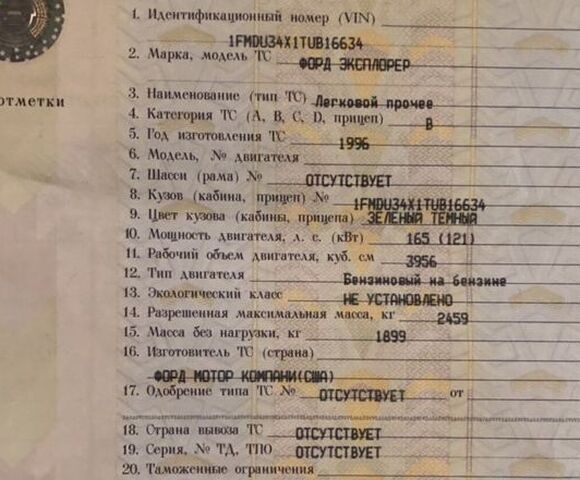 1. Идентификационный номер (VIN)
1FMDU34X1TUB16634
2. Марка, модель ТС ФОРД ЭКСПЛОРЕР
отметки
3. Наименование (тип ТС) Легковой прочее
4. Категория ТС (А, В, С, D, прицеп) В
5. Год изготовления ТС 1996
6. Модель, № двигателя
7. Шасси (рама) № ОТСУТСТВУЕТ
8. Кузов (кабина, прицеп) № 1FMDU34X1TUB16634
9. Цвет кузова (кабины, прицепа) ЗЕЛЕНЫЙ ТЕМНЫЙ
10. Мощность двигателя, л. с. (кВт) 165 (121)
11. Рабочий объем двигателя, куб. см 3956
12. Тип двигателя Бензиновый на бензине
13. Экологический класс НЕ УСТАНОВЛЕНО
14. Разрешенная максимальная масса, кг 2459
15. Масса без нагрузки, кг 1899
16. Изготовитель ТС (страна)
ФОРД МОТОР КОМПАНИ(США)
17. Одобрение типа ТС № ОТСУТСТВУЕТ от
18. Страна вывоза ТС ОТСУТСТВУЕТ
19. Серия, № ТД, ТПО ОТСУТСТВУЕТ
20. Таможенные ограничения